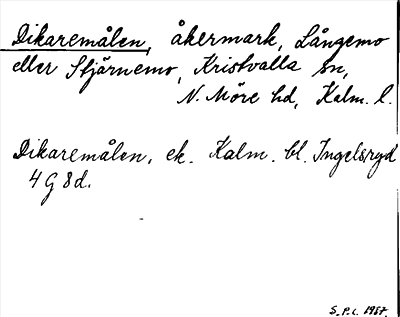 Dikaremålen, åkermark, Långemo
eller Stjärnemo, Kristvalla sn,
N. Möre hd, Kalm. l.
Dikaremålen, ek. Kalm. bl. Ingelsryd
4 G 8 d.
S.P.L. 1967.